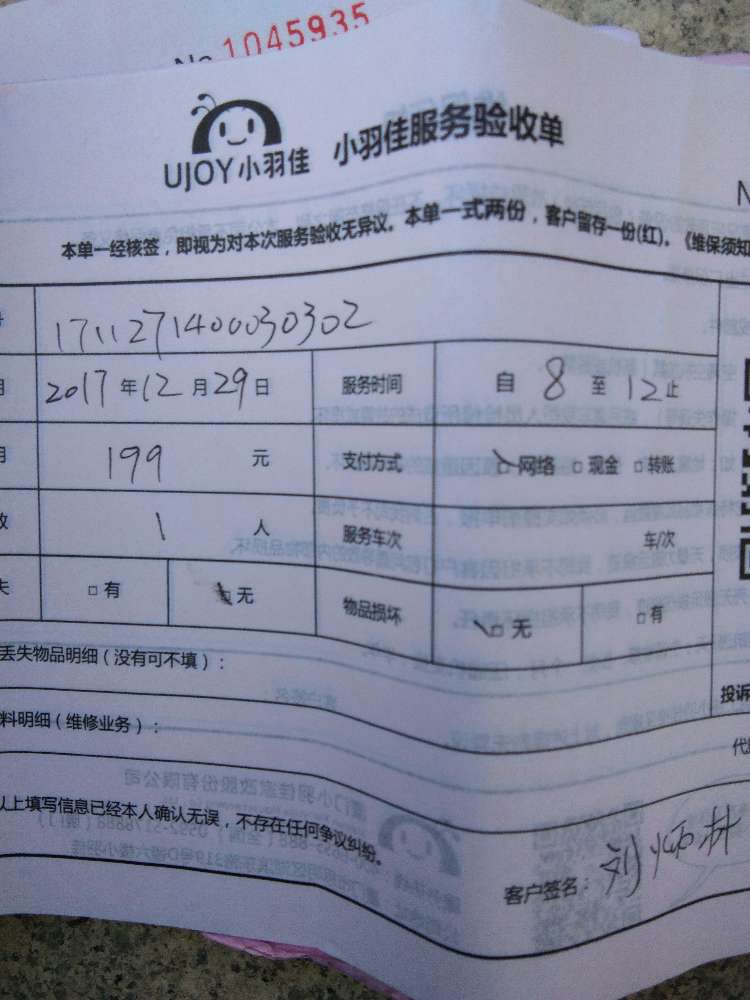 No 1045935
UJOY小羽佳 小羽佳服务验收单
N
本单一经核签，即视为对本次服务验收无异议。本单一式两份，客户留存一份(红)。《维保须知
1711271400030302
月 2017年12月29日 服务时间 自 8 至 12 止
199 元 支付方式 网络 □现金 □转账
1 人 服务车次 车/次
失 □有 □无 物品损坏 □无 □有
丢失物品明细（没有可不填）：
投诉
料明细（维修业务）：
以上填写信息已经本人确认无误，不存在任何争议纠纷。
客户签名：刘炳林